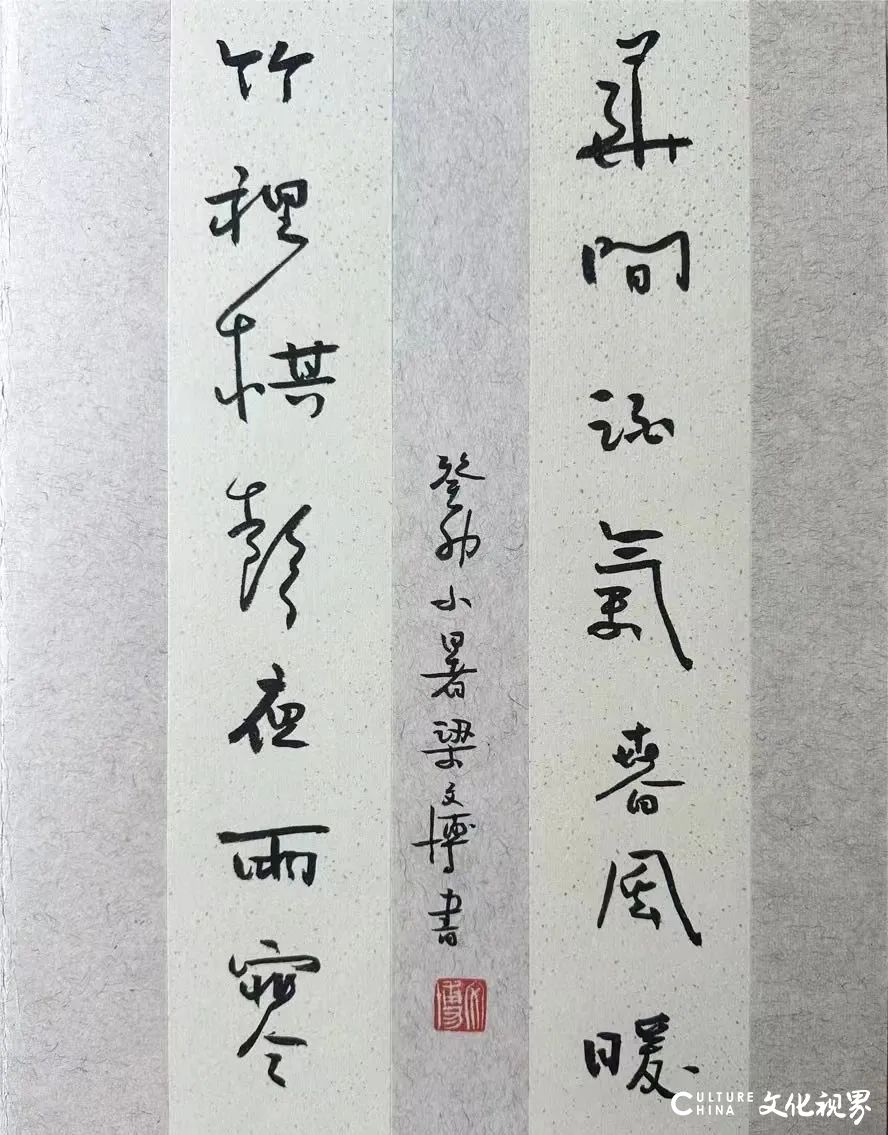 華間酒氣春風暖
竹裡棋聲夜雨寒
癸卯小暑梁文博書
文博
CULTURE CHINA 文化视界